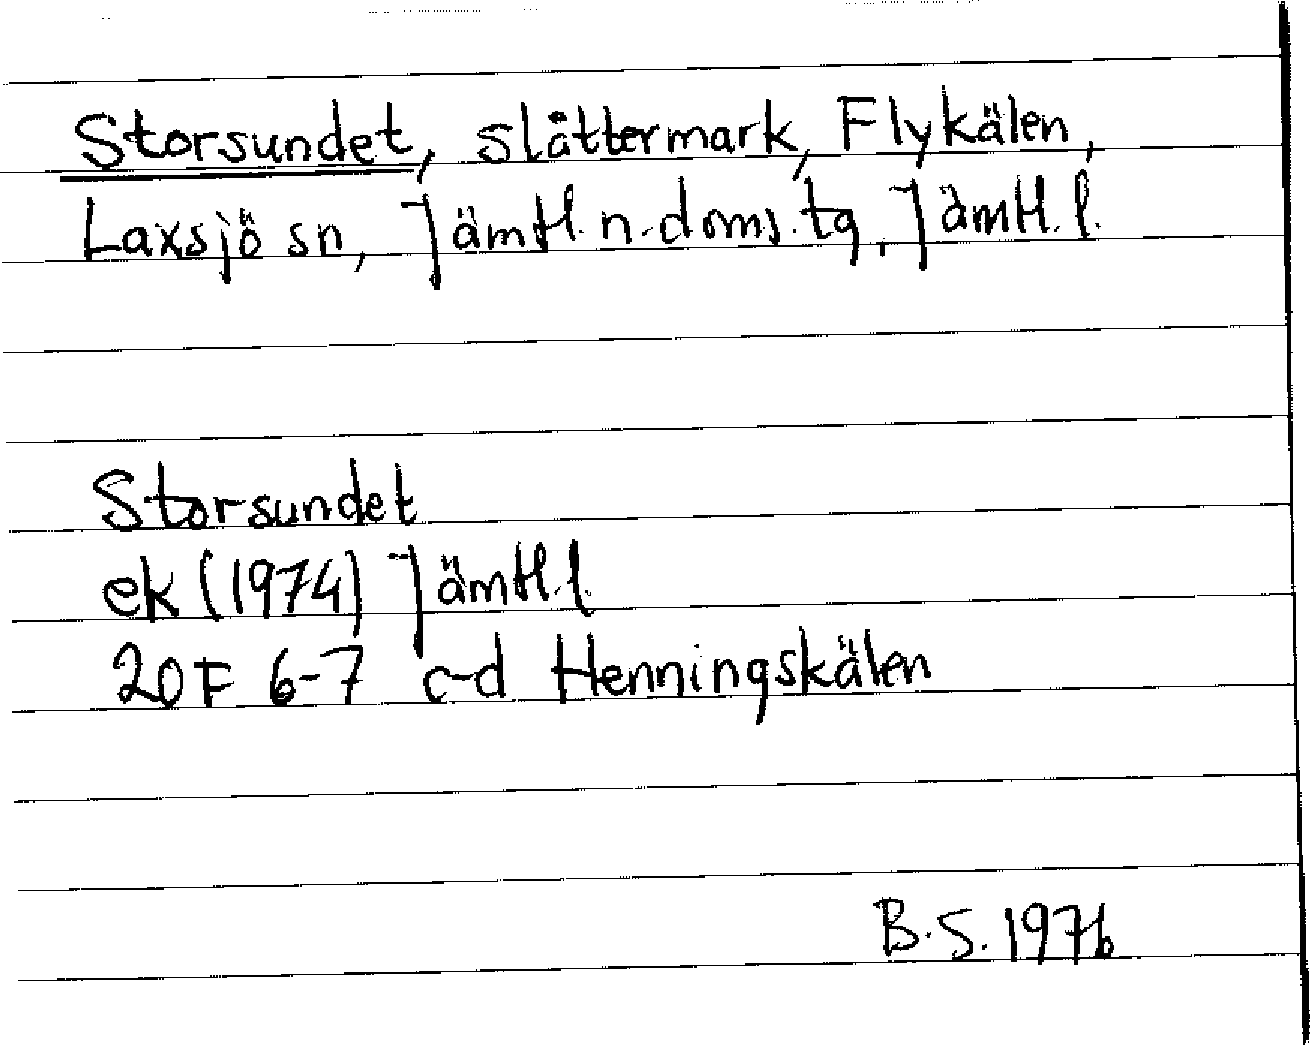 Storsundet, slåttermark, Flykälen,
Laxsjö sn, Jämtl. n. doms. tg, Jämtl. l.
Storsundet
ek (1974) Jämtl. l.
20F 6-7 c-d Henningskälen
B.S. 1976